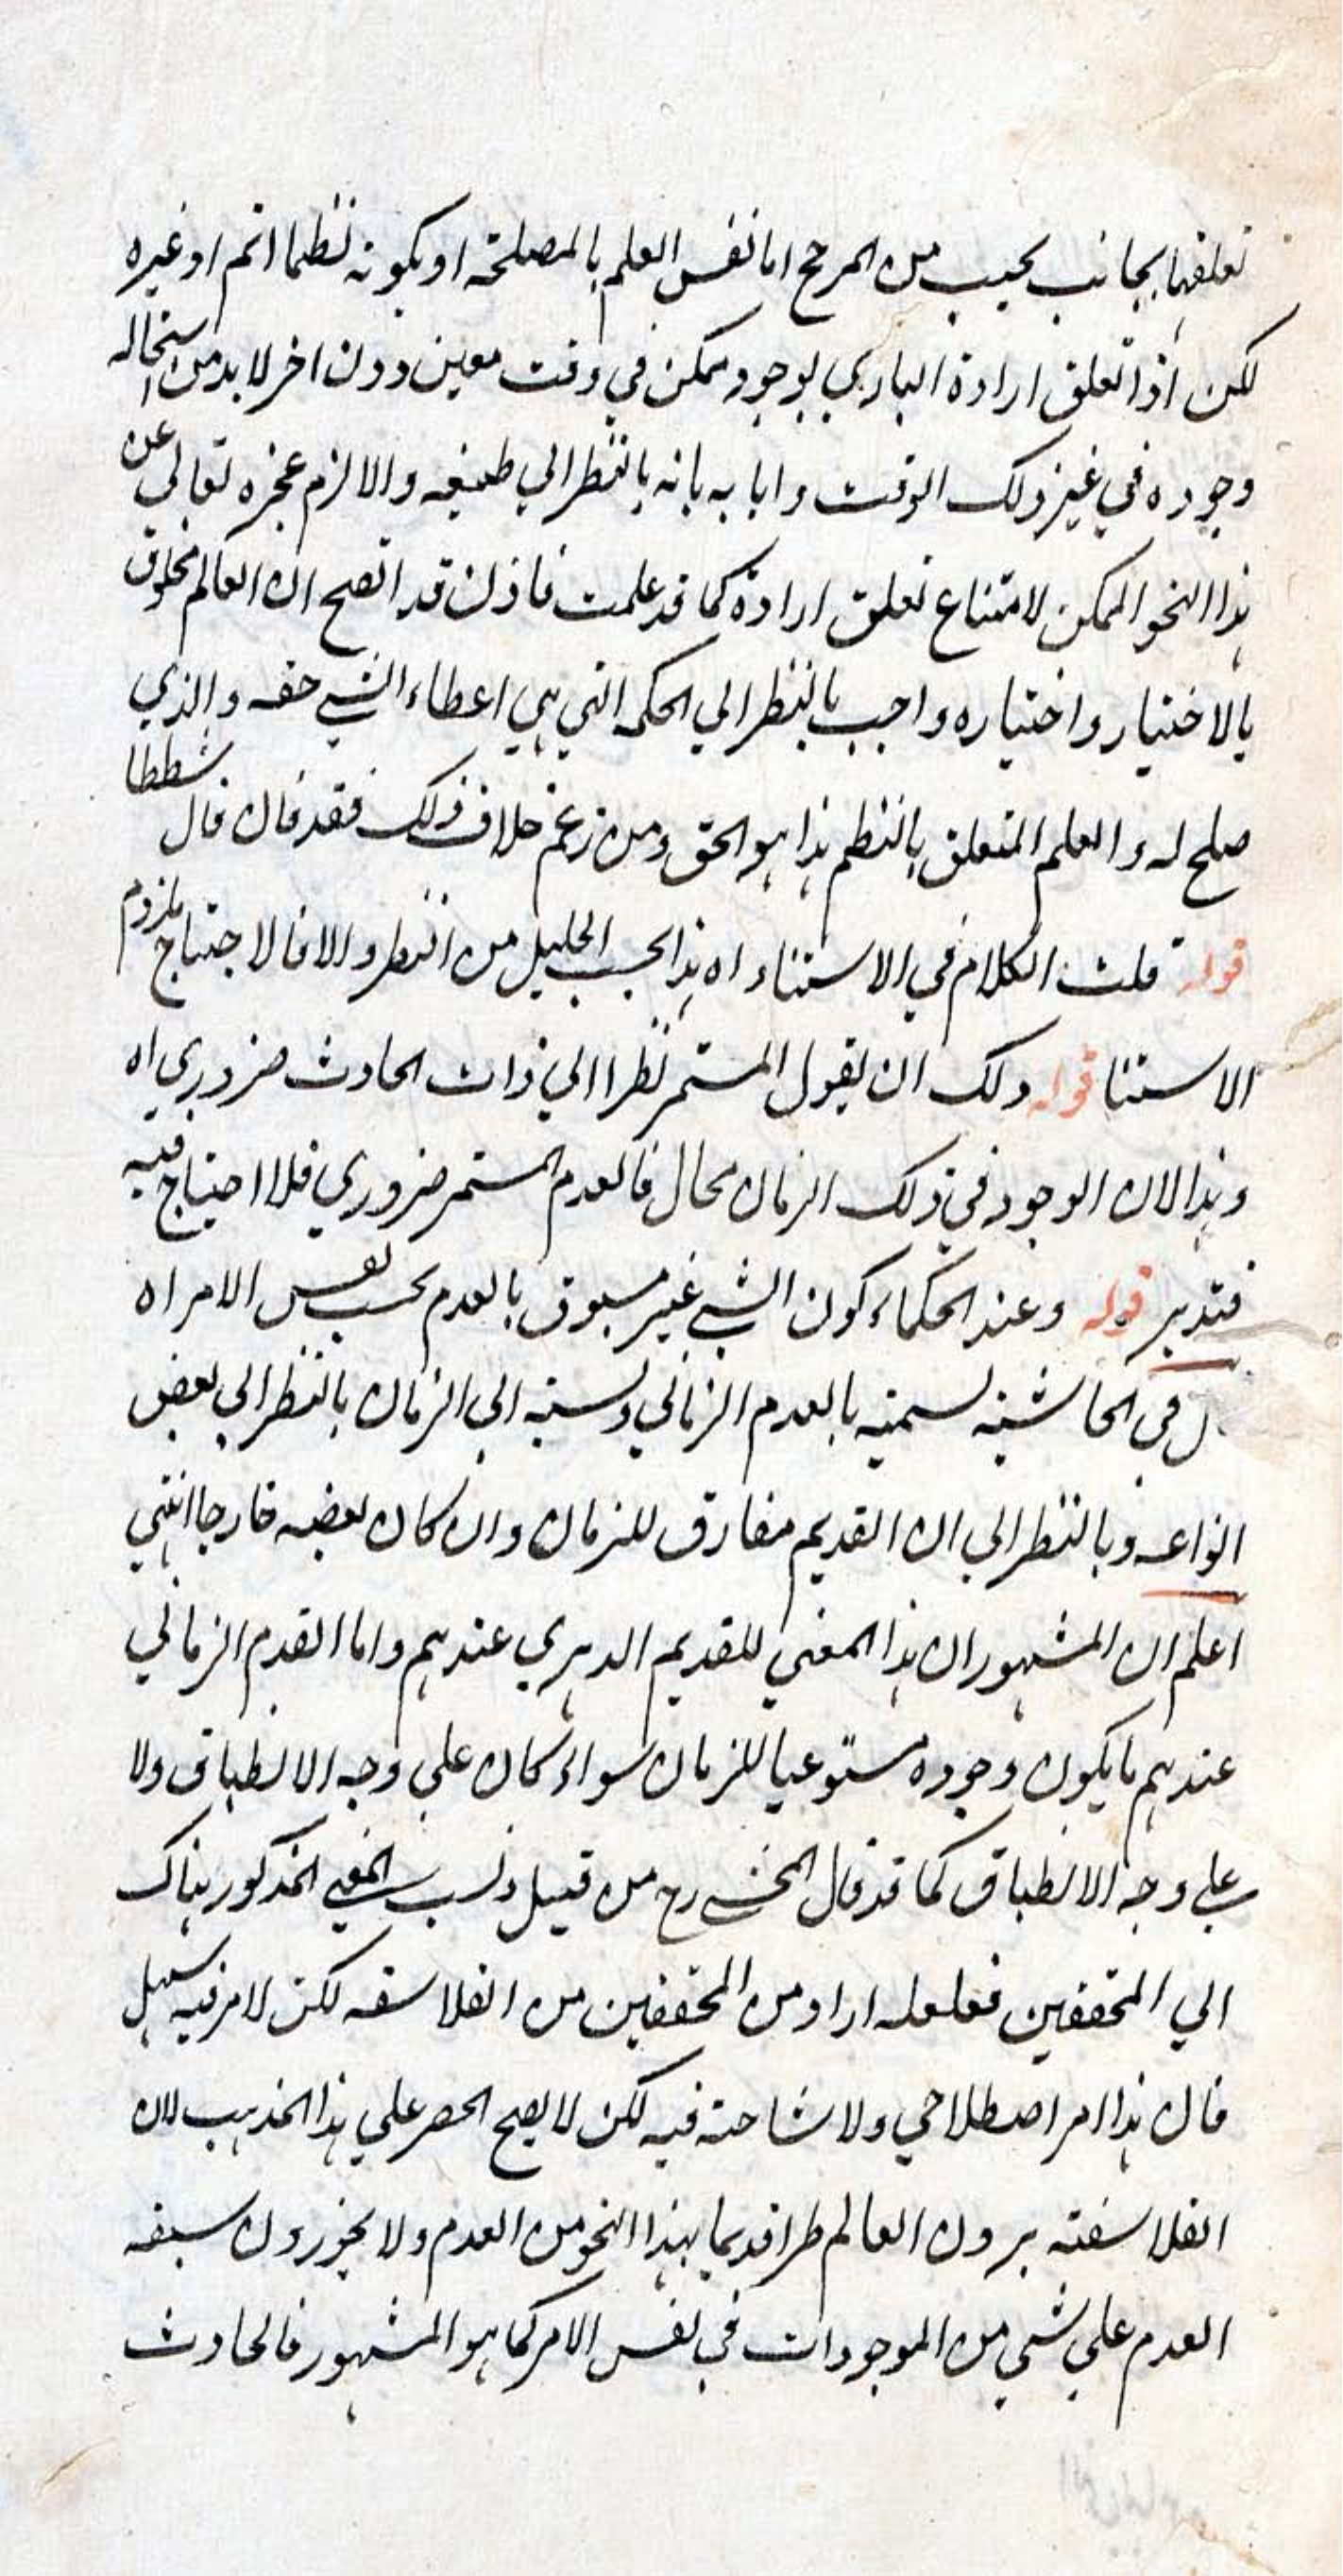 تعلقها بجانب يجب من المرجح اما نفس العلم بالمصلحة او بكونه نظما اتم او غيره
لكن اذا تعلق ارادة الباري بوجود ممكن في وقت معين دون اخر لابد من استحالة
وجوده في غير ذلك الوقت و ابا به بانه بالنظر الي طبيعه والا لزم عجزه تعالي عن
هذا النحو الممكن لامتناع تعلق ارادة كما قد علمت فاذن قد اتضح ان العالم مخلوق
بالاختيار واختياره واجب بالنظر الي الحكمه التي هي اعطاء الشي حقه والذي
صلح له و العلم المتعلق بالنظم هذا هو الحق ومن زعم خلاف ذلك فقد قال قال شططا
قوله قلت الكلام في الاستناد اه هذا بحسب الجليل من النظر والا فالاحتياج يلزم
الاستنا قوله ولك ان تقول المستمر نظرا الي ذات الحادث ضروري اه
وهذا لان الوجود في ذلك الزمان محال فالعدم المستمر ضروري فلا احتياج فيه
فتدبر قوله وعند الحكماء كون الشي غير مسبوق بالعدم بحسب نفس الامر اه
ل في الحاشية تسميته بالعدم الزماني ونسبته الي الزمان بالنظر الي بعض
انواعه وبالنظر الي ان القديم مفارق للزمان وان كان بعضه خارجا انتهي
اعلم ان المشهور ان هذا المعني للقديم الدهري عندهم واما القدم الزماني
عندهم ما يكون وجوده مستوعبا للزمان سواء كان علي وجه الانطباق ولا
علي وجه الانطباق كما قد قال المحشي رح من قبيل ونسب المعني المذكور هناك
الي المحققين فلعله اراد من المحققين من الفلاسفه لكن الامر فيه سهل
فان هذا امر اصطلاحي ولا مشاحته فيه لكن لا يصح الحصر علي هذا المذهب لان
الفلاسفته يرون العالم طرا قديما بهذا النحو من العدم ولا يجوزون سبقه
العدم علي شي من الموجودات في نفس الامر كما هو المشهور فالحادث